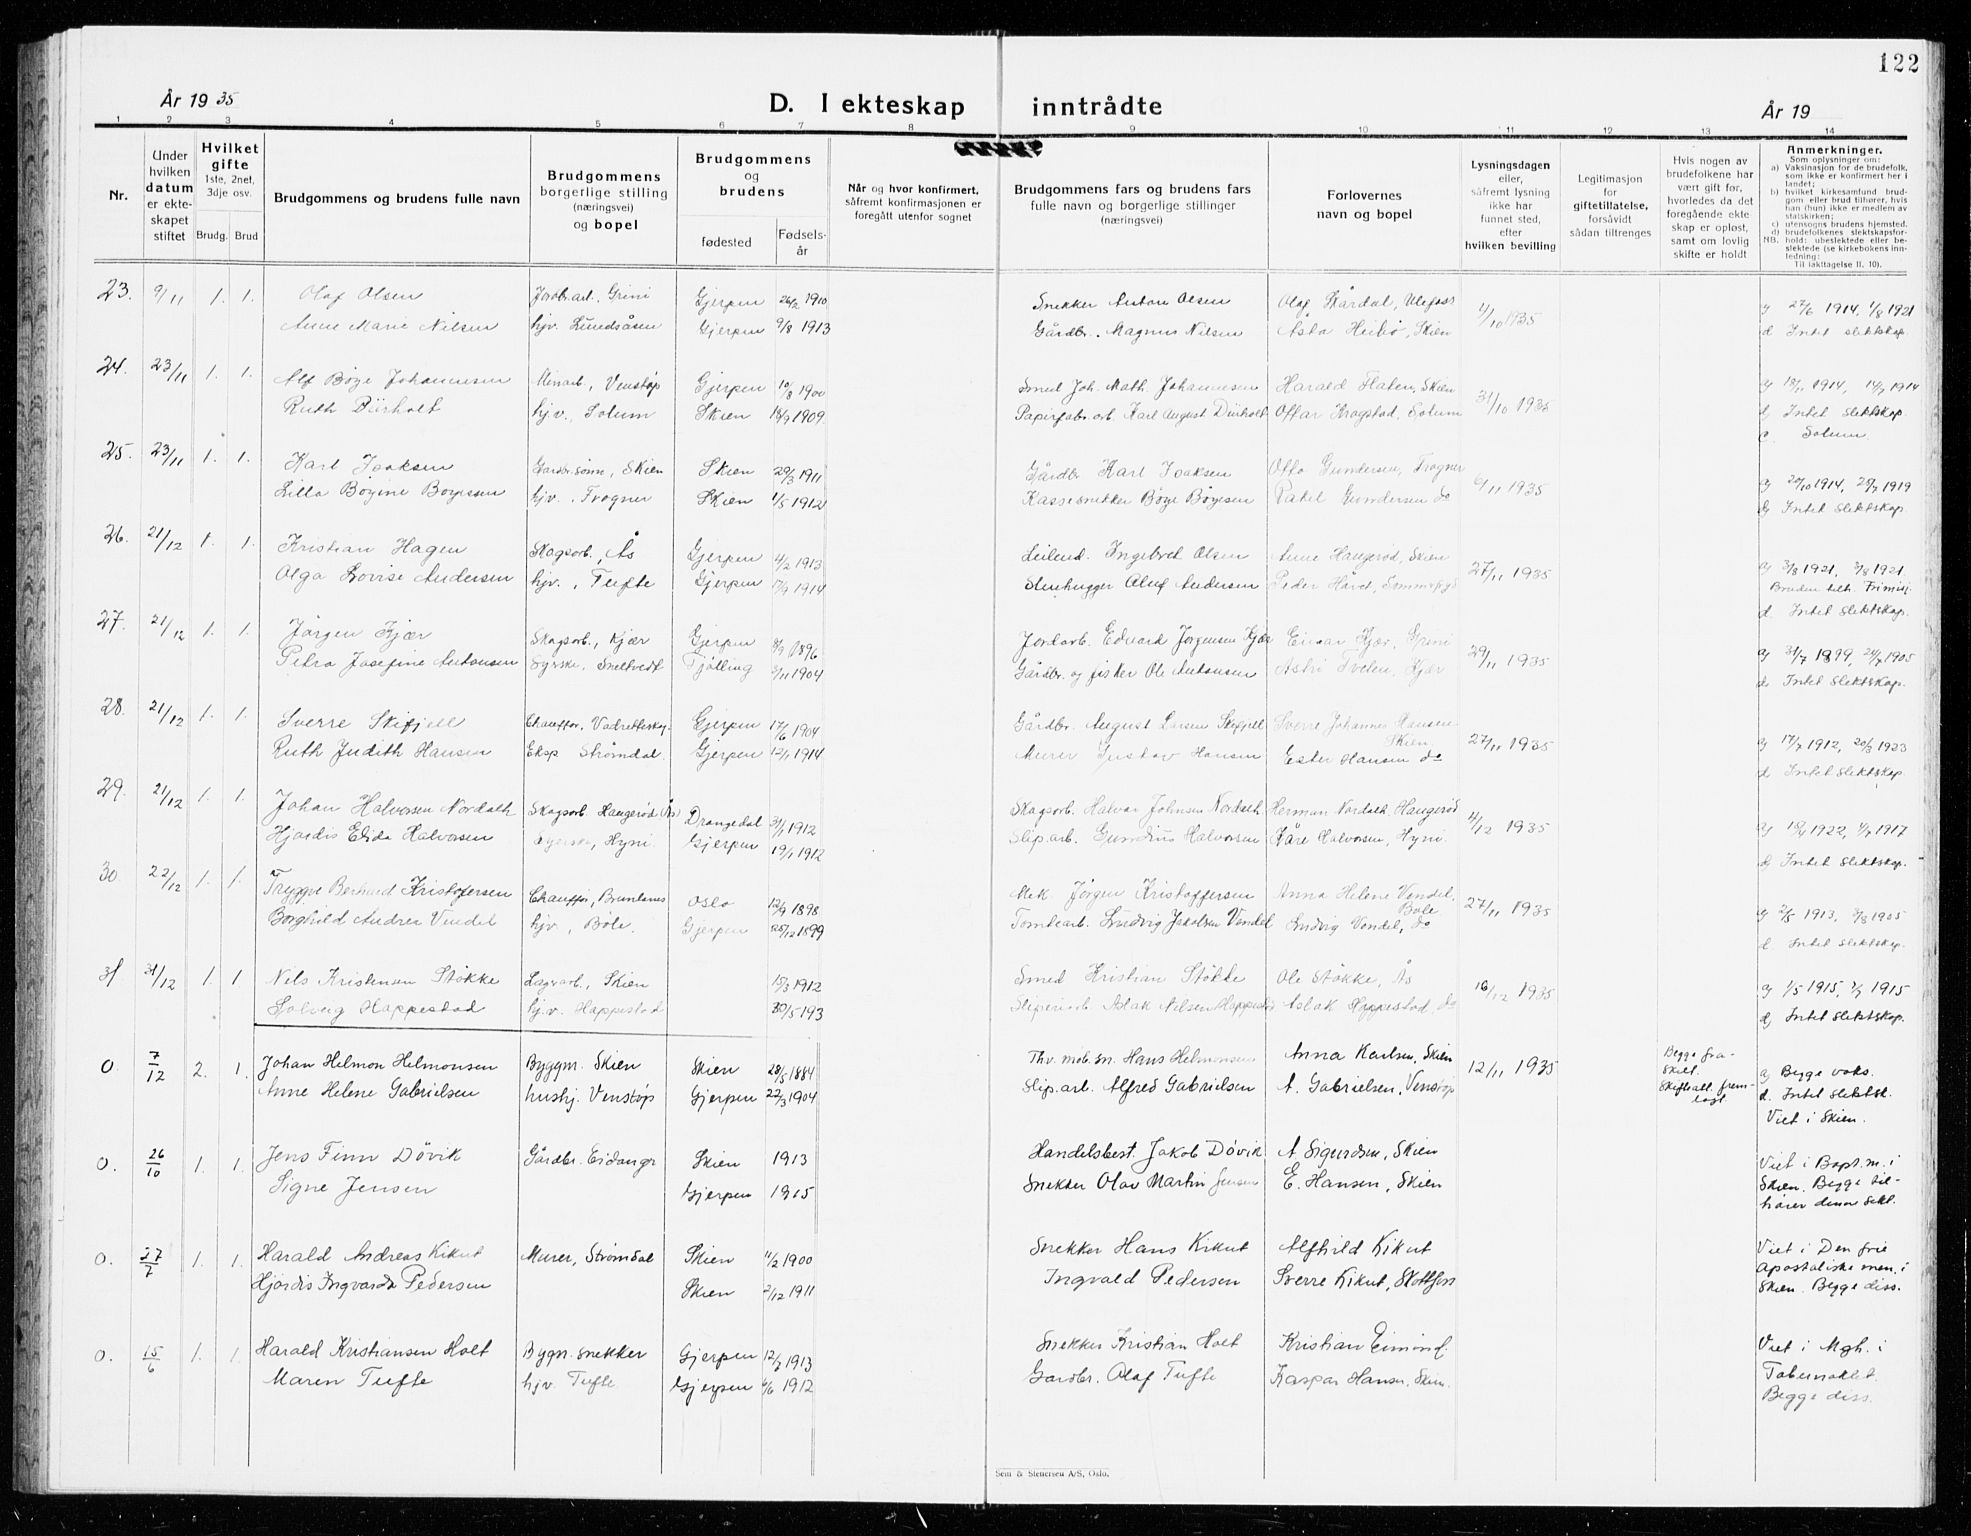 122
År 19 35
D. I ekteskap inntrådte
År 19
1 2 3 4 5 6 7 8 9 10 11 12 13 14
Nr.
Under hvilken datum er ekteskapet stiftet
Hvilket gifte 1ste, 2net, 3dje osv.
Brudg. Brud
Brudgommens og brudens fulle navn
Brudgommens borgerlige stilling (næringsvei) og bopel
Brudgommens og brudens
fødested
Fødselsår
Når og hvor konfirmert, såfremt konfirmasjonen er foregått utenfor sognet
Brudgommens fars og brudens fars fulle navn og borgerlige stillinger (næringsvei)
Forlovernes navn og bopel
Lysningsdagen eller, såfremt lysning ikke har funnet sted, efter hvilken bevilling
Legitimasjon for giftetillatelse, forsåvidt sådan tiltrenges
Hvis nogen av brudefolkene har vært gift før, hvorledes da det foregående ekteskap er opløst, samt om lovlig skifte er holdt
Anmerkninger.
Som oplysninger om:
a) Vaksinasjon for de brudefolk, som ikke er konfirmert her i landet;
b) hvilket kirkesamfund brudgom eller brud tilhører, hvis han (hun) ikke er medlem av statskirken;
c) utensogns brudens hjemsted.
d) brudefolkenes slektskapsforhold: ubeslektede eller beslektede (se kirkebokens innledning:
NB. Til iakttagelse II. 10).
23. 9/11 1. 1. Olaf Olsen Jordbr.arb., Grini Gjerpen 26/2 1910 Snekker Anton Olsen Olaf Kårdal, Ulefoss 4/10 1935 a) 27/6 1914, 1/8 1921
Anne Marie Nilsen hjv. Lundsåsen Gjerpen 9/8 1913 Gårdbr. Magnus Nilsen Asta Heibø, Skien d Intet slektskap
24. 23/11 1. 1. Alf Bøge Johannessen Minarb., Venstøp Gjerpen 10/8 1900 Smed Joh. Math. Johannesen Harald Flaten, Skien 31/10 1935 a) 18/11 1914, 14/7 1914
Ruth Dürholt hjv. Solum Skien 18/9 1909 Papirfabr.arb. Karl August Dürholt Ottar Kragstad, Solum d) Intet slektskap
c. Solum
25. 23/11 1. 1. Karl Isaksen Gårdbr.sønn, Skien Skien 29/3 1911 Gårdbr Karl Isaksen Otto Gundersen, Frogner 6/11 1935 a) 20/10 1914, 28/7 1919
Lilla Bøgine Bøgesen hjv., Frogner Skien 1/5 1912 Kassesnekker Bøge Bøgesen Rakel Gundersen do d) Intet slektskap.
26. 21/12 1. 1. Kristian Hagen Skogsarb., Ås Gjerpen 4/2 1913 Leilend. Ingebret Olsen Anne Haugerød, Skien 27/11 1935 a) 3/8 1921, 3/8 1921
Olga Lovise Andersen hjv., Tufte Gjerpen 17/9 1914 Stenhugger Oluf Andersen Peder Håvet, Bruden tilh. Frimisj.
d. Intet slektskap.
27. 21/12 1. 1. Jørgen Kjær Skogsarb., Kjær Gjerpen 8/9 1896 Jordarb. Edvard Jørgensen Kjær Einar Kjær, Grini 29/11 1935 a) 31/7 1899, 24/7 1905
Petra Josefine Antonsen Syerske, Sneltvedt Tjølling 5/11 1904 Gårdbr. og fisker Ole Antonsen Astri Tveten, Kjær d Intet slektskap.
28. 21/12 1. 1. Sverre Skifjell Chauffør, Gjerpen 17/6 1904 Gårdbr. August Larsen Skifjell Sverre Johannes Hansen Skien 27/11 1935 a) 17/7 1912, 20/3 1923
Ruth Judith Hansen Eksp Strømdal. Gjerpen 12/1 1914 Murer Gustav Hansen Ester Hansen do d Intet slektskap
29. 21/12 1. 1. Johan Halvorsen Nordalth Skogsarb. Haugerød (Ås) Drangedal 31/1 1912 Skogsarb. Halvor Johnsen Nordalth Herman Nordalth, Haugerød 4/12 1935 a) 18/6 1922, 4/7 1917
Hjørdis Elida Halvorsen Syerske, Hyni. Gjerpen 19/1 1912 Slip.arb. Gundius Halvorsen Kåre Halvorsen, Hyni. d) Intet slektskap.
30. 22/12 1. 1. Tryggve Berhard Kristoffersen Chauffør, Brunlanes Oslo 12/9 1898 Mek. Jørgen Kristoffersen Anna Helene Vendel, Bøle 27/11 1935 a) 2/5 1913, 3/8 1905
Borghild Andrea Vendel hjv., Bøle. Gjerpen 25/12 1899 Tomtearb. Ludvig Jakobsen Vendel Ludvig Vendel, do d. Intet slektskap.
31 31/12 1. 1. Nils Kristensen Støkke Lagerarb., Skien 15/3 1912 Smed Kristian Støkke Ole Støkke, Ås 16/12 1935 a) 1/5 1915, 1/7 1915
Solveig Hoppestad hjv. Hoppestad 30/5 193 Sliperiarb. Aslak Nilsen Hoppestad Aslak Hoppestad do d) Intet slektskap.
0 7/12 2. 1. Johan Helmon Helmonsen Byggm. Skien Skien 28/5 1884 Thv. mob.sn. Hans Helmonsen Anna Karlsen, Skien 12/11 1935 Begge fraskilt. Skifteatt. fremlagt. a) Begge vaks.
Anne Helene Gabrielsen hushj. Venstøp Gjerpen 22/3 1904 Slip.arb. Alfred Gabrielsen A. Gabrielsen, Venstøp d. Intet slektsk.
Viet i Skien.
0. 26/10 1. 1. Jens Finn Døvik Gårdbr. Eidanger Skien 1913 Handelsbest. Jakob Døvik A Sigurdsen, Skien Viet i Bapt.m. i
Signe Jensen Gjerpen 1915 Snekker Olav Martin Jensen E. Hansen, Skien Skien. Begge tilhører denne sekt.
0. 27/7 1. 1. Harald Andreas Kikut Murer, Strømdal Skien 11/2 1900 Snekker Hans Kikut Alfhild Kikut Viet i Den frie
Hjørdis Ingvarda Pedersen Skien 2/12 1911 Ingvald Pedersen Sverre Kikut, Skotfoss apostoliske men. i Skien. Begge diss.
0. 15/6 1. 1. Harald Kristiansen Holt Bygn.snekker Gjerpen 12/7 1913 Snekker Kristian Holt Kristian Eimind. Viet i Mgh. i
Maren Tufte hjv. Tufte Gjerpen 6/6 1912 Gårdbr. Olaf Tufte Kaspar Hansen, Skien. Tabernaklet.
Begge diss.
Sem & Stenersen A/S, Oslo.